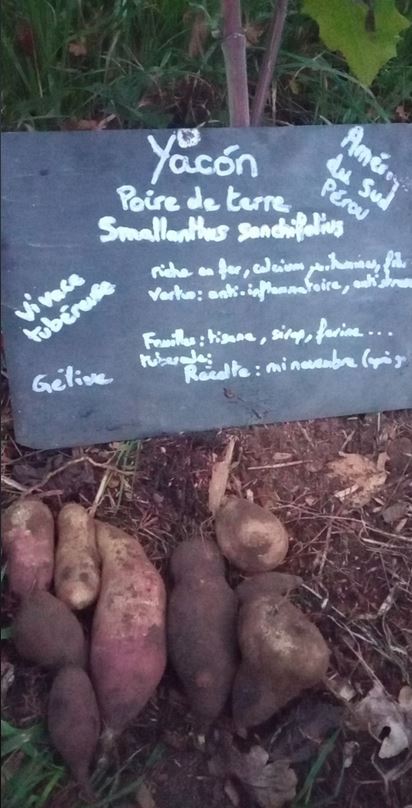 Yacón
Poire de terre
Smallanthus sonchifolius
Améri
du Sud
Pérou
riche en fer, calcium, vitamines, fib
Vertus: anti-inflammatoire, antistress
Vivace
tubéreuse
Feuilles: tisane, sirop, farine ...
tubercule:
Gélive
Récolte: mi novembre (après g